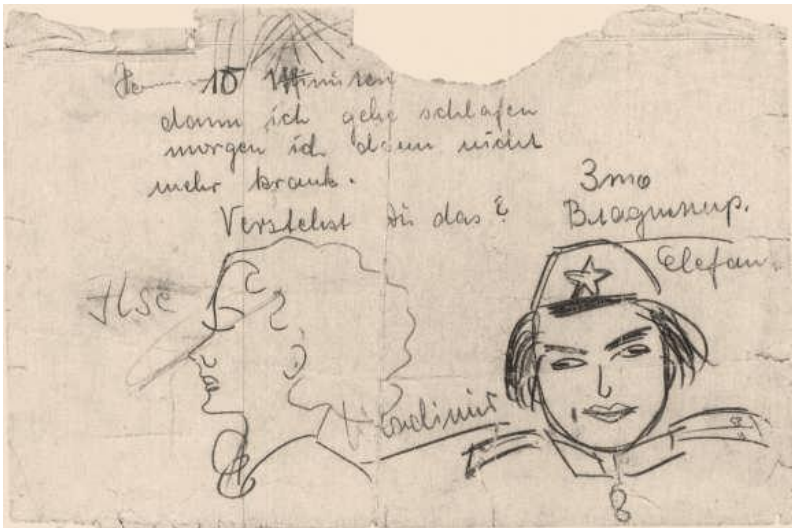 10 Minuten
dann ich gehe schlafen
morgen ich dann nicht
mehr krank.
Verstehst Du das?
Это
Владимир.
Elefan.
Ilse
Vladimir